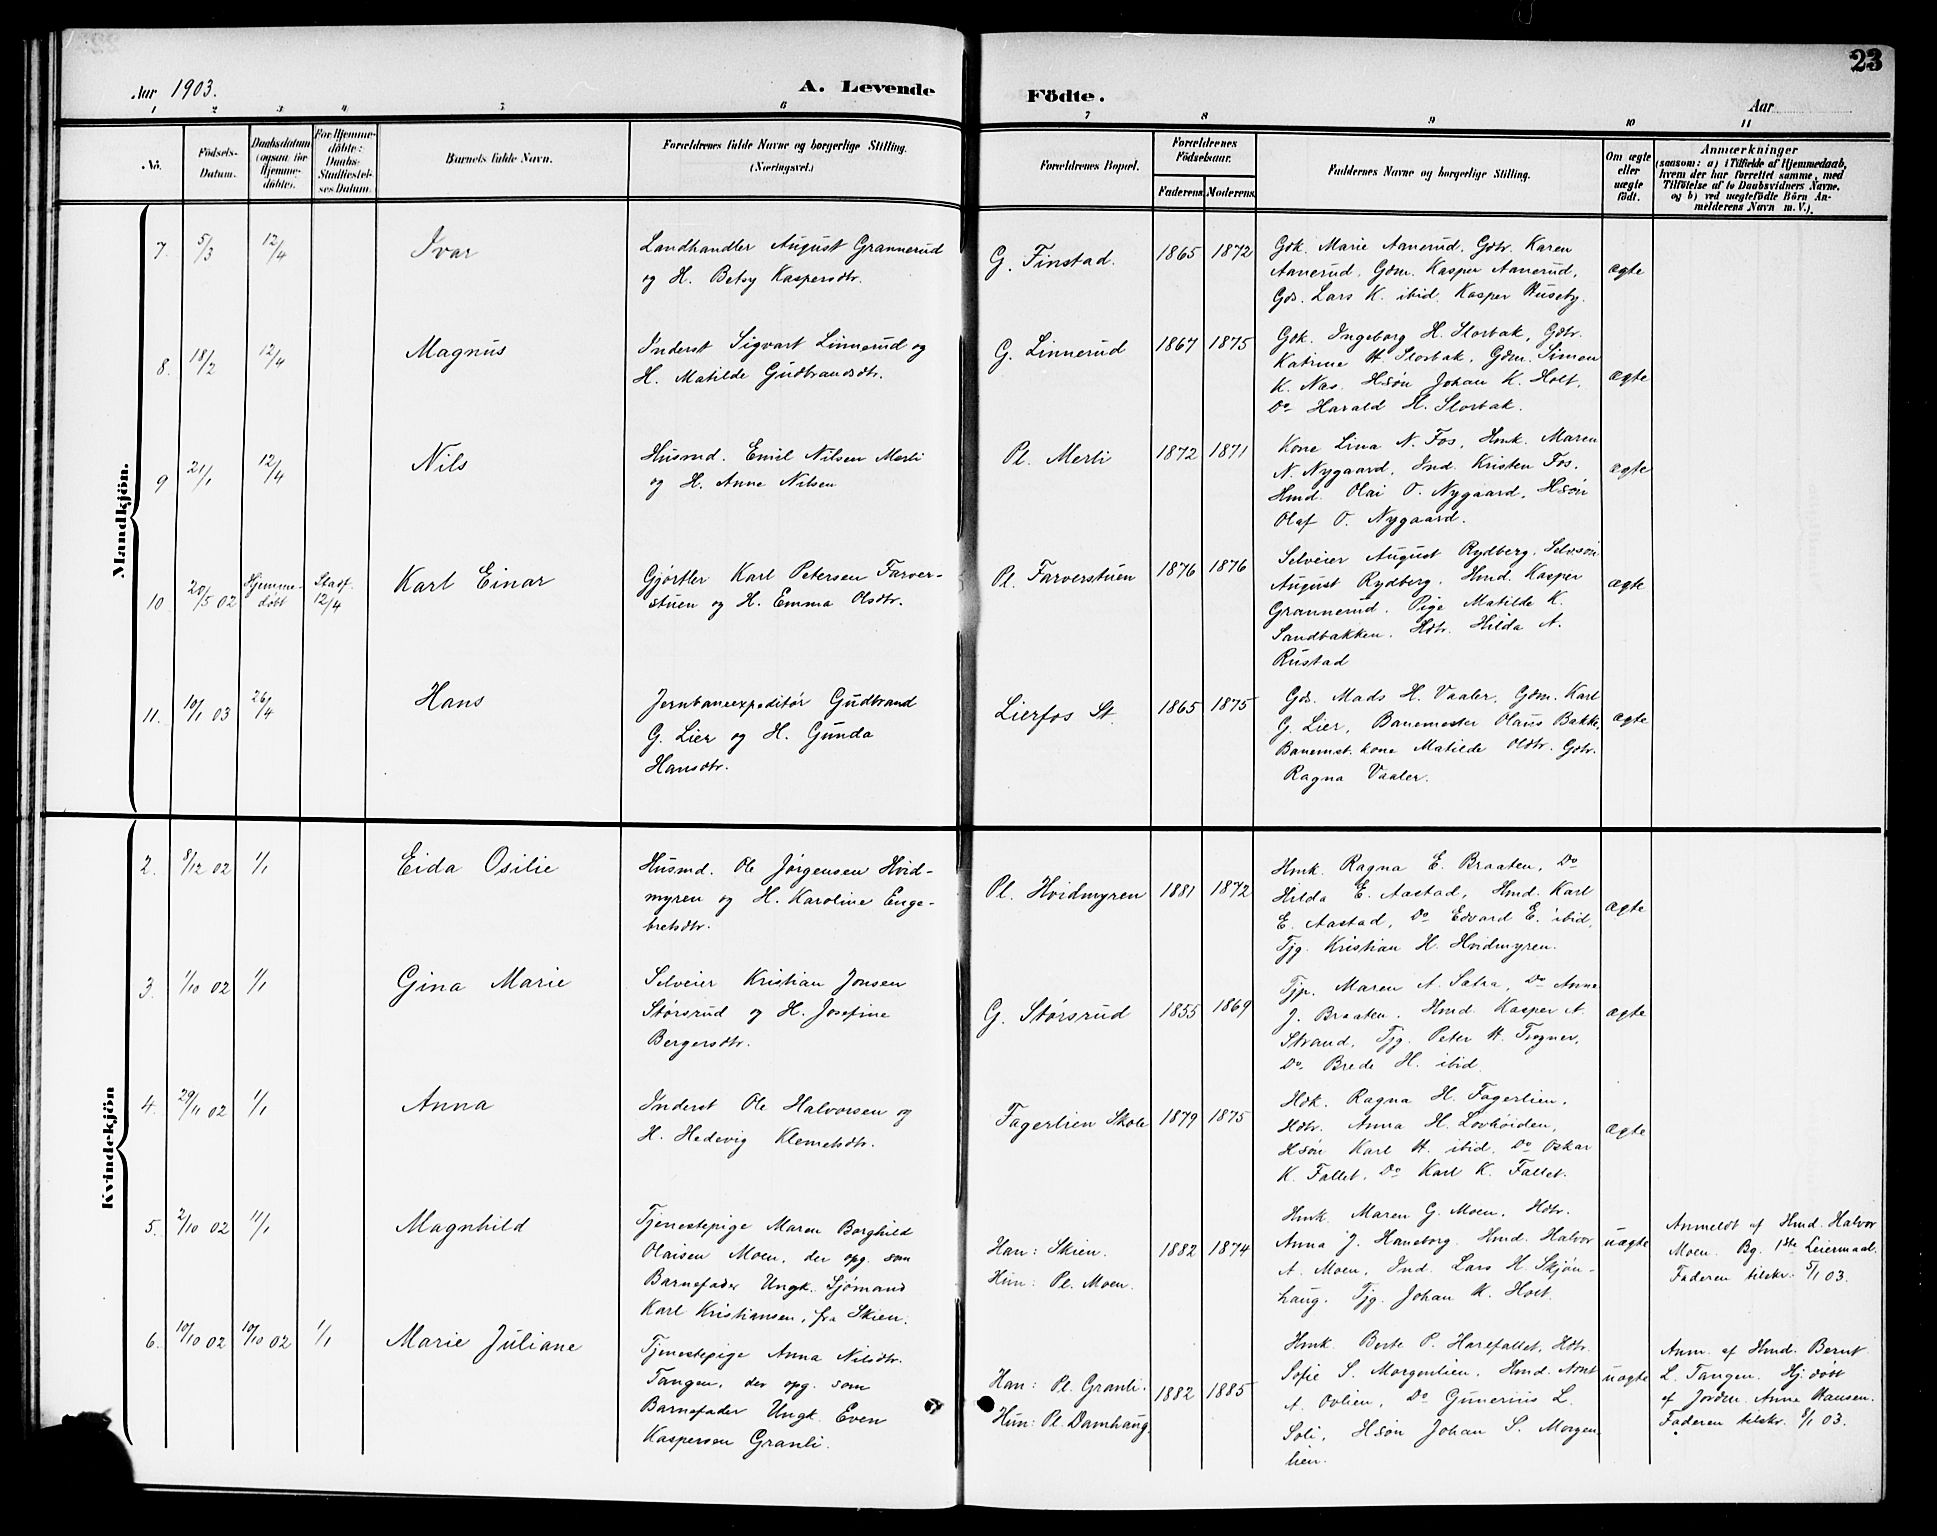 23
Aar 1903.
A. Levende Födte.
Aar
1 2 3 4 5 6 7 8 9 10 11
No.
Födsels-Datum.
Daabsdatum (ogsaa for Hjemmedöbte).
For Hjemmedöbte: Daabs-Stadfæstelses Datum.
Barnets fulde Navn.
Forældrenes fulde Navne og borgerlige Stilling. (Næringsvei.)
Forældrenes Bopæl.
Forældrenes Födselsaar.
Faderens. Moderens.
Faddernes Navne og borgerlige Stilling.
Om ægte eller uægte födt.
Anmærkninger
(saasom: a) i Tilfælde af Hjemmedaab, hvem der har forrettet samme, med Tilföielse af to Daabsvidners Navne, og b) ved uægtefödte Börn Anmelderens Navn m. V.).
Mandkjön.
7. 5/3 12/4 Ivar
Landhandler August Grannerud
og H. Betsy Kaspersdtr.
G. Finstad. 1865 1872
Gdk. Marie Aanerud. Gdtr. Karen
Aanerud, Gdm. Kasper Aanerud,
Gds. Lars K. ibid. Kasper Huseby.
ægte
8. 18/2 12/4 Magnus
Inderst Sigvart Linnerud og
H. Matilde Gudbrandsdtr.
G. Linnerud 1867 1875
Gdk. Ingeborg H. Slorbak, Gdtr.
Katrine H. Slorbak, Gdm. Simon
K. Nas. Hsøn Johan K. Holt,
Do Harald H. Slorbak.
ægte
9 21/1 12/4 Nils
Husmd. Emil Nilsen Merli
og H. Anne Nilsen
Pl. Merli 1872 1871
Kone Lina N. Fos, Hmk. Maren
N. Nygaard, Ind. Kristen Fos.
Hmd. Olai O. Nygaard, Hsøn
Olaf O. Nygaard.
ægte
10 20/5 02 Hjemme-
döbt Stadf. 12/4 Karl Einar
Gjørtler Karl Petersen Farver-
stuen og H. Emma Olsdtr.
Pl. Farverstuen 1876 1876
Selveier August Rydberg. Selvsøn
August Rydberg. Hmd. Kasper
Grannerud. Pige Matilde K.
Sandbakken. Hdtr. Hilda A.
Rustad
ægte
11. 10/1 03 26/4 Hans
Jernbaneexpeditör Gudbrand
G. Lier og H. Gunda
Hansdtr.
Lierfos St. 1865 1875
Gds. Mads H. Vaaler, Gdm. Karl
G. Lier, Banemester Olaus Bakke,
Banemst. kone Matilde Oldtr. Gdtr.
Ragna Vaaler.
ægte
Kvindekjön
2. 8/12 02 1/1 Eida Osilie
Husmd. Ole Jørgensen Hvid-
myren og H. Karoline Enge-
bretsdtr.
Pl. Hvidmyren 1881 1872
Hmk. Ragna E. Braaten, Do
Hilda E. Aastad, Hmd. Karl
E. Aastad, Do Edvard E. ibid,
Tjg. Kristian H. Hvidmyren.
ægte
3. 1/10 02 1/1 Gina Marie
Selveier Kristian Jonsen
Størsrud og H. Josefine
Bergersdtr.
G. Størsrud 1855 1869
Tjp. Maren A. Satra, Do Anne
J. Braaten. Hmd. Kasper A.
Strand, Tjg. Peter H. Trogner,
Do Brede H. ibid.
ægte
4. 29/11 02 1/1 Anna
Inderst Ole Halvorsen og
H. Hedevig Klemetsdtr.
Fagerlien Skole 1879 1875
Hdk. Ragna H. Fagerlien,
Hdtr. Anna H. Lovhöiden,
Hsön Karl H. ibid. Do Oskar
K. Fallet, Do Karl K. Fallet.
ægte
5. 2/10 02 11/1 Magnhild
Tjenestepige Maren Borghild
Olaisen Moen, der opg. som
Barnefader Ungk. Sjømand
Karl Kristiansen, fra Skien.
Han: Skien.
Hun: Pl. Moen. 1882 1874
Hmk. Maren G. Moen, Hdtr.
Anna J. Haneborg. Hmd. Halvor
A. Moen, Ind. Lars H. Skjøn-
haug. Tjg. Johan K. Holt.
uægte
Anmeldt af Hmd. Halvor
Moen. Bg. 1ste Leiermaal.
Faderen tilskr. 5/1 03.
6. 10/10 02 10/10 02 1/1 Marie Juliane
Tjenestepige Anna Nilsdtr.
Tangen, der opg. som
Barnefader Ungk. Even
Kaspersen Granli.
Han: Pl. Granli.
Hun: Pl. Damhaug. 1882 1885
Hmk. Berte P. Harefallet, Hdtr.
Sofie S. Morgenlien, Hmd. Arnt
A. Ovlien, Do Gunerius L.
Soli, Hsøn Johan S. Morgen-
lien.
uægte
Anm. af Hmd. Bernt
L. Tangen. Hj.døbt
af Jordm. Anne Hansen.
Faderen tilskr. 8/1 03.